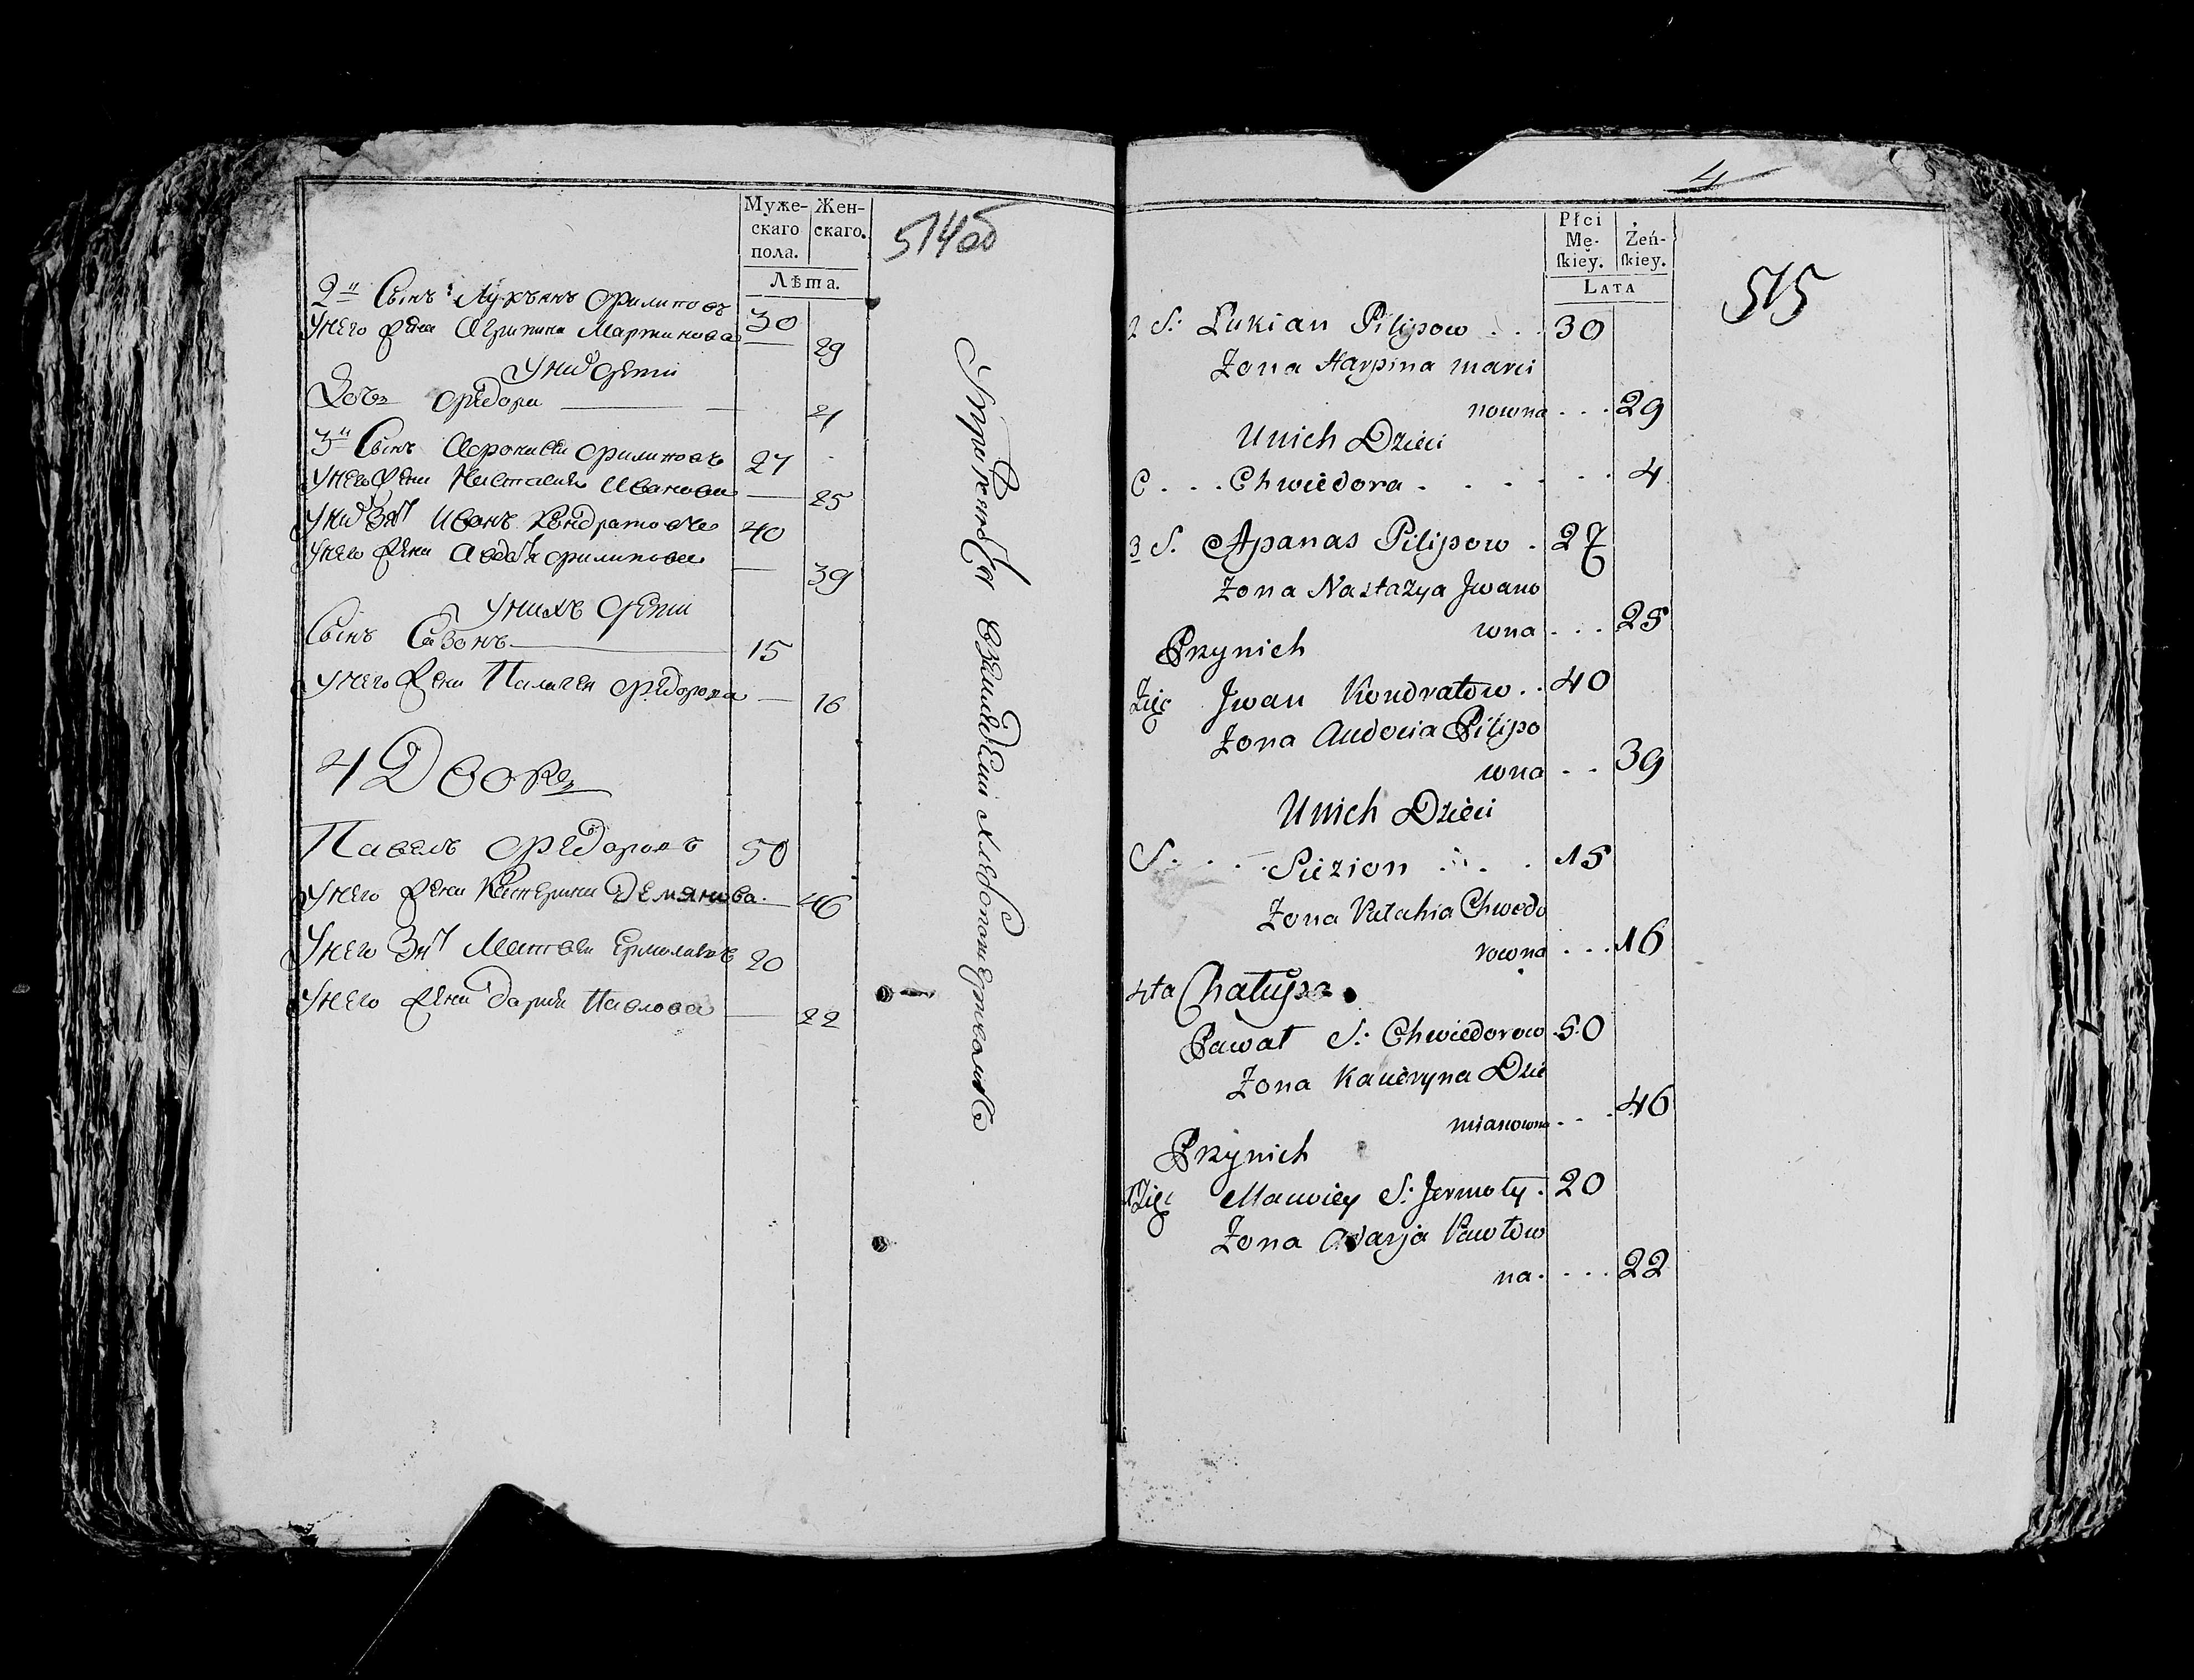 Муже-
скаго
пола.
Жен-
скаго.
Лѣта.
514об
2й Сынъ Лукъянъ Филиповъ 30
Унего Жена Агрипина Мартинова — 29
Уних Дети
Дочь Федора — 4
3й Сынъ Афонасей Филиповъ 27
Унего Жена Настасия Иванова — 25
Уних Зять Иванъ Кондратовъ 40
Унего Жена Авдотя Филипова — 39
Унихъ Дети
Сынъ Сазонъ — 15
Унего Жена Палагея Федорова — 16
4 Дворъ
Павелъ Федоровъ 50
Унего Жена Катерина Демянова — 46
Унего Зять Матвей Ермолаевъ 20
Унего Жена Дарья Павлова — 22
4
Płci
Mę-
ſkiey.
Żeń-
ſkiey.
LATA
515
2 S: Łukian Pilipow . . . 30
Żona Harpina Marci
nowna . . . 29
Unich Dzieci
C . . . Chwiedora . . . . . . 4
3 S. Apanas Pilipow . 27
Żona Nastazya Jwano
wna . . . 25
Przynich
Zięc Jwan Kondratow . . 40
Żona Audocia Pilipo
wna . . 39
Unich Dzieci
S. . . . Siezion . . . 15
Żona Pałahia Chwedo
rowna . . . 16
4ta Chałupa
Pawał S: Chwiedorow 50
Żona Kacieryna Dzie
mianowna . . . 46
Przynich
Zięc Maciviey S: Jermoły . 20
Żona Adarja Pawłow
na . . . . 22